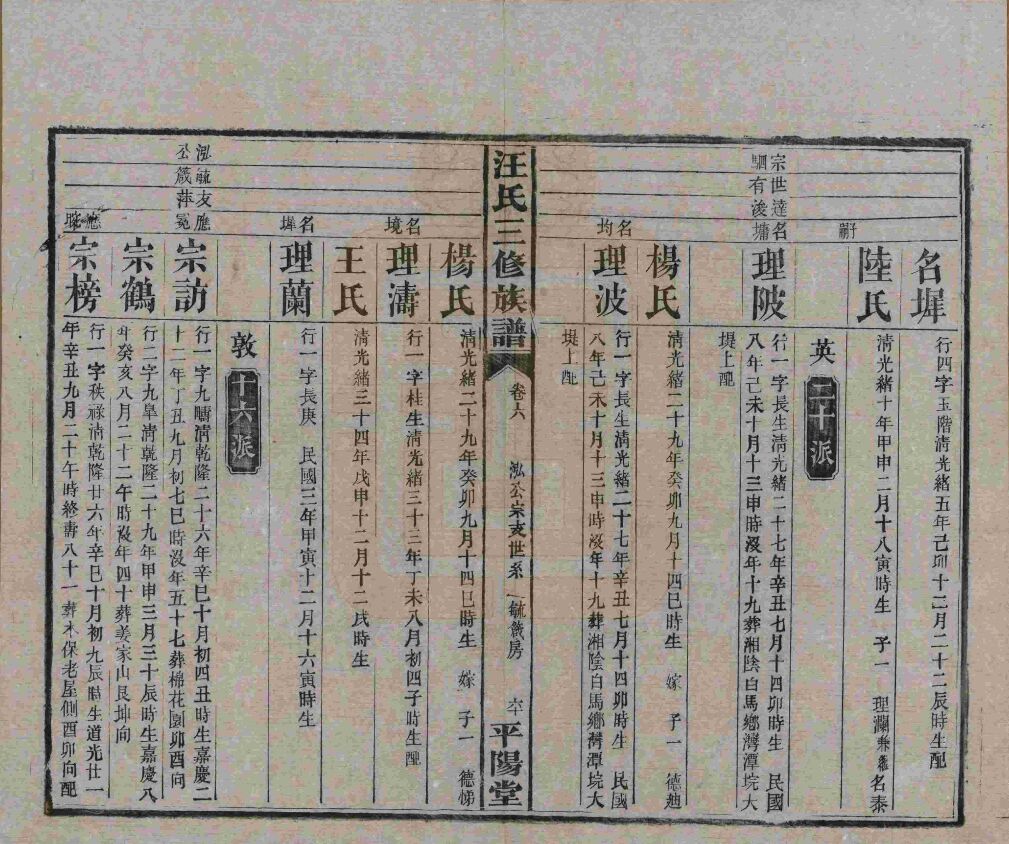 名墀
行四字玉階清光緒五年己卯十三月二十二辰時生配
子嗣
陸氏
清光緒十年甲申二月十八寅時生 子一 理瀾兼 名泰
英
二十派
宗世達名
駟有浚墉
理陂
行一字長生清光緒二十七年辛丑七月十四卯時生 民國
八年己未十月十三申時沒年十九葬湘陰白馬鄉灣潭垸大
堤上 配
楊氏
清光緒二十九年癸卯九月十四巳時生 嫁 子一 德迪
名均
理波
行一字長生清光緒二十七年辛丑七月十四卯時生 民國
八年己未十月十三申時沒年十九葬湘陰白馬鄉灣潭垸大
堤上 配
汪氏三修族譜
卷六
泓公宗支世系 毓箴房
六
平陽堂
楊氏
清光緒二十九年癸卯九月十四巳時生 嫁 子一 德悌
名境
理濤
行一字桂生清光緒三十三年丁未八月初四子時生 配
王氏
清光緒三十四年戊申十二月十二戌時生
名墀
理蘭
行一字長庚 民國三年甲寅十二月十六寅時生
敦
十六派
泓毓友應
公箴萍冕
宗訪
行一字九疇清乾隆二十六年辛巳十月初四丑時生嘉慶二
十二年丁丑九月初七巳時沒年五十七葬棉花園卯酉向
宗鶴
行二字九皐清乾隆二十九年甲申三月三十辰時生嘉慶八
年癸亥八月二十二午時沒年四十葬姜家山艮坤向
應
宗榜
行一字秩祿清乾隆廿六年辛巳十月初九辰時生道光廿一
年辛丑九月二十午時終壽八十一葬木保老屋側酉卯向配